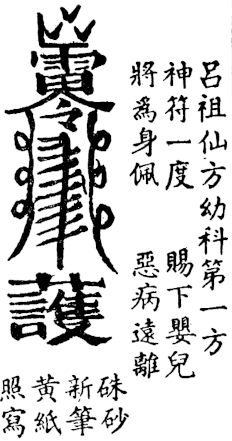 呂祖仙方幼科第一方
神符一度 賜下嬰兒
將為身佩 惡病遠離
硃砂
新筆
黃紙
照寫
雷
令
護